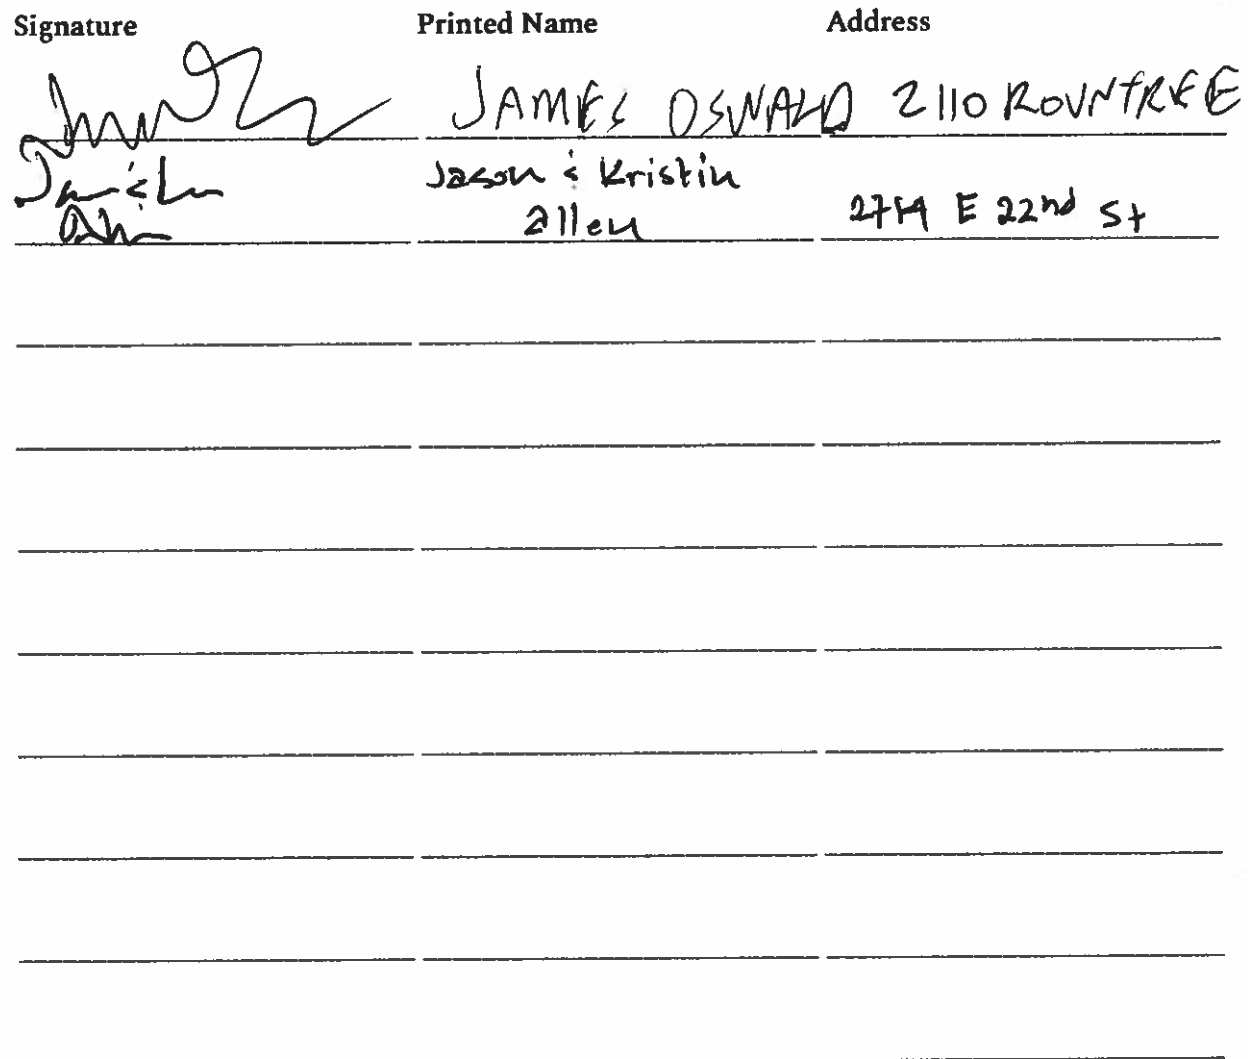 Signature Printed Name Address
JAMES OSWALD 2110 ROUNTREE
Jason & Kristin
allen
E 22nd St